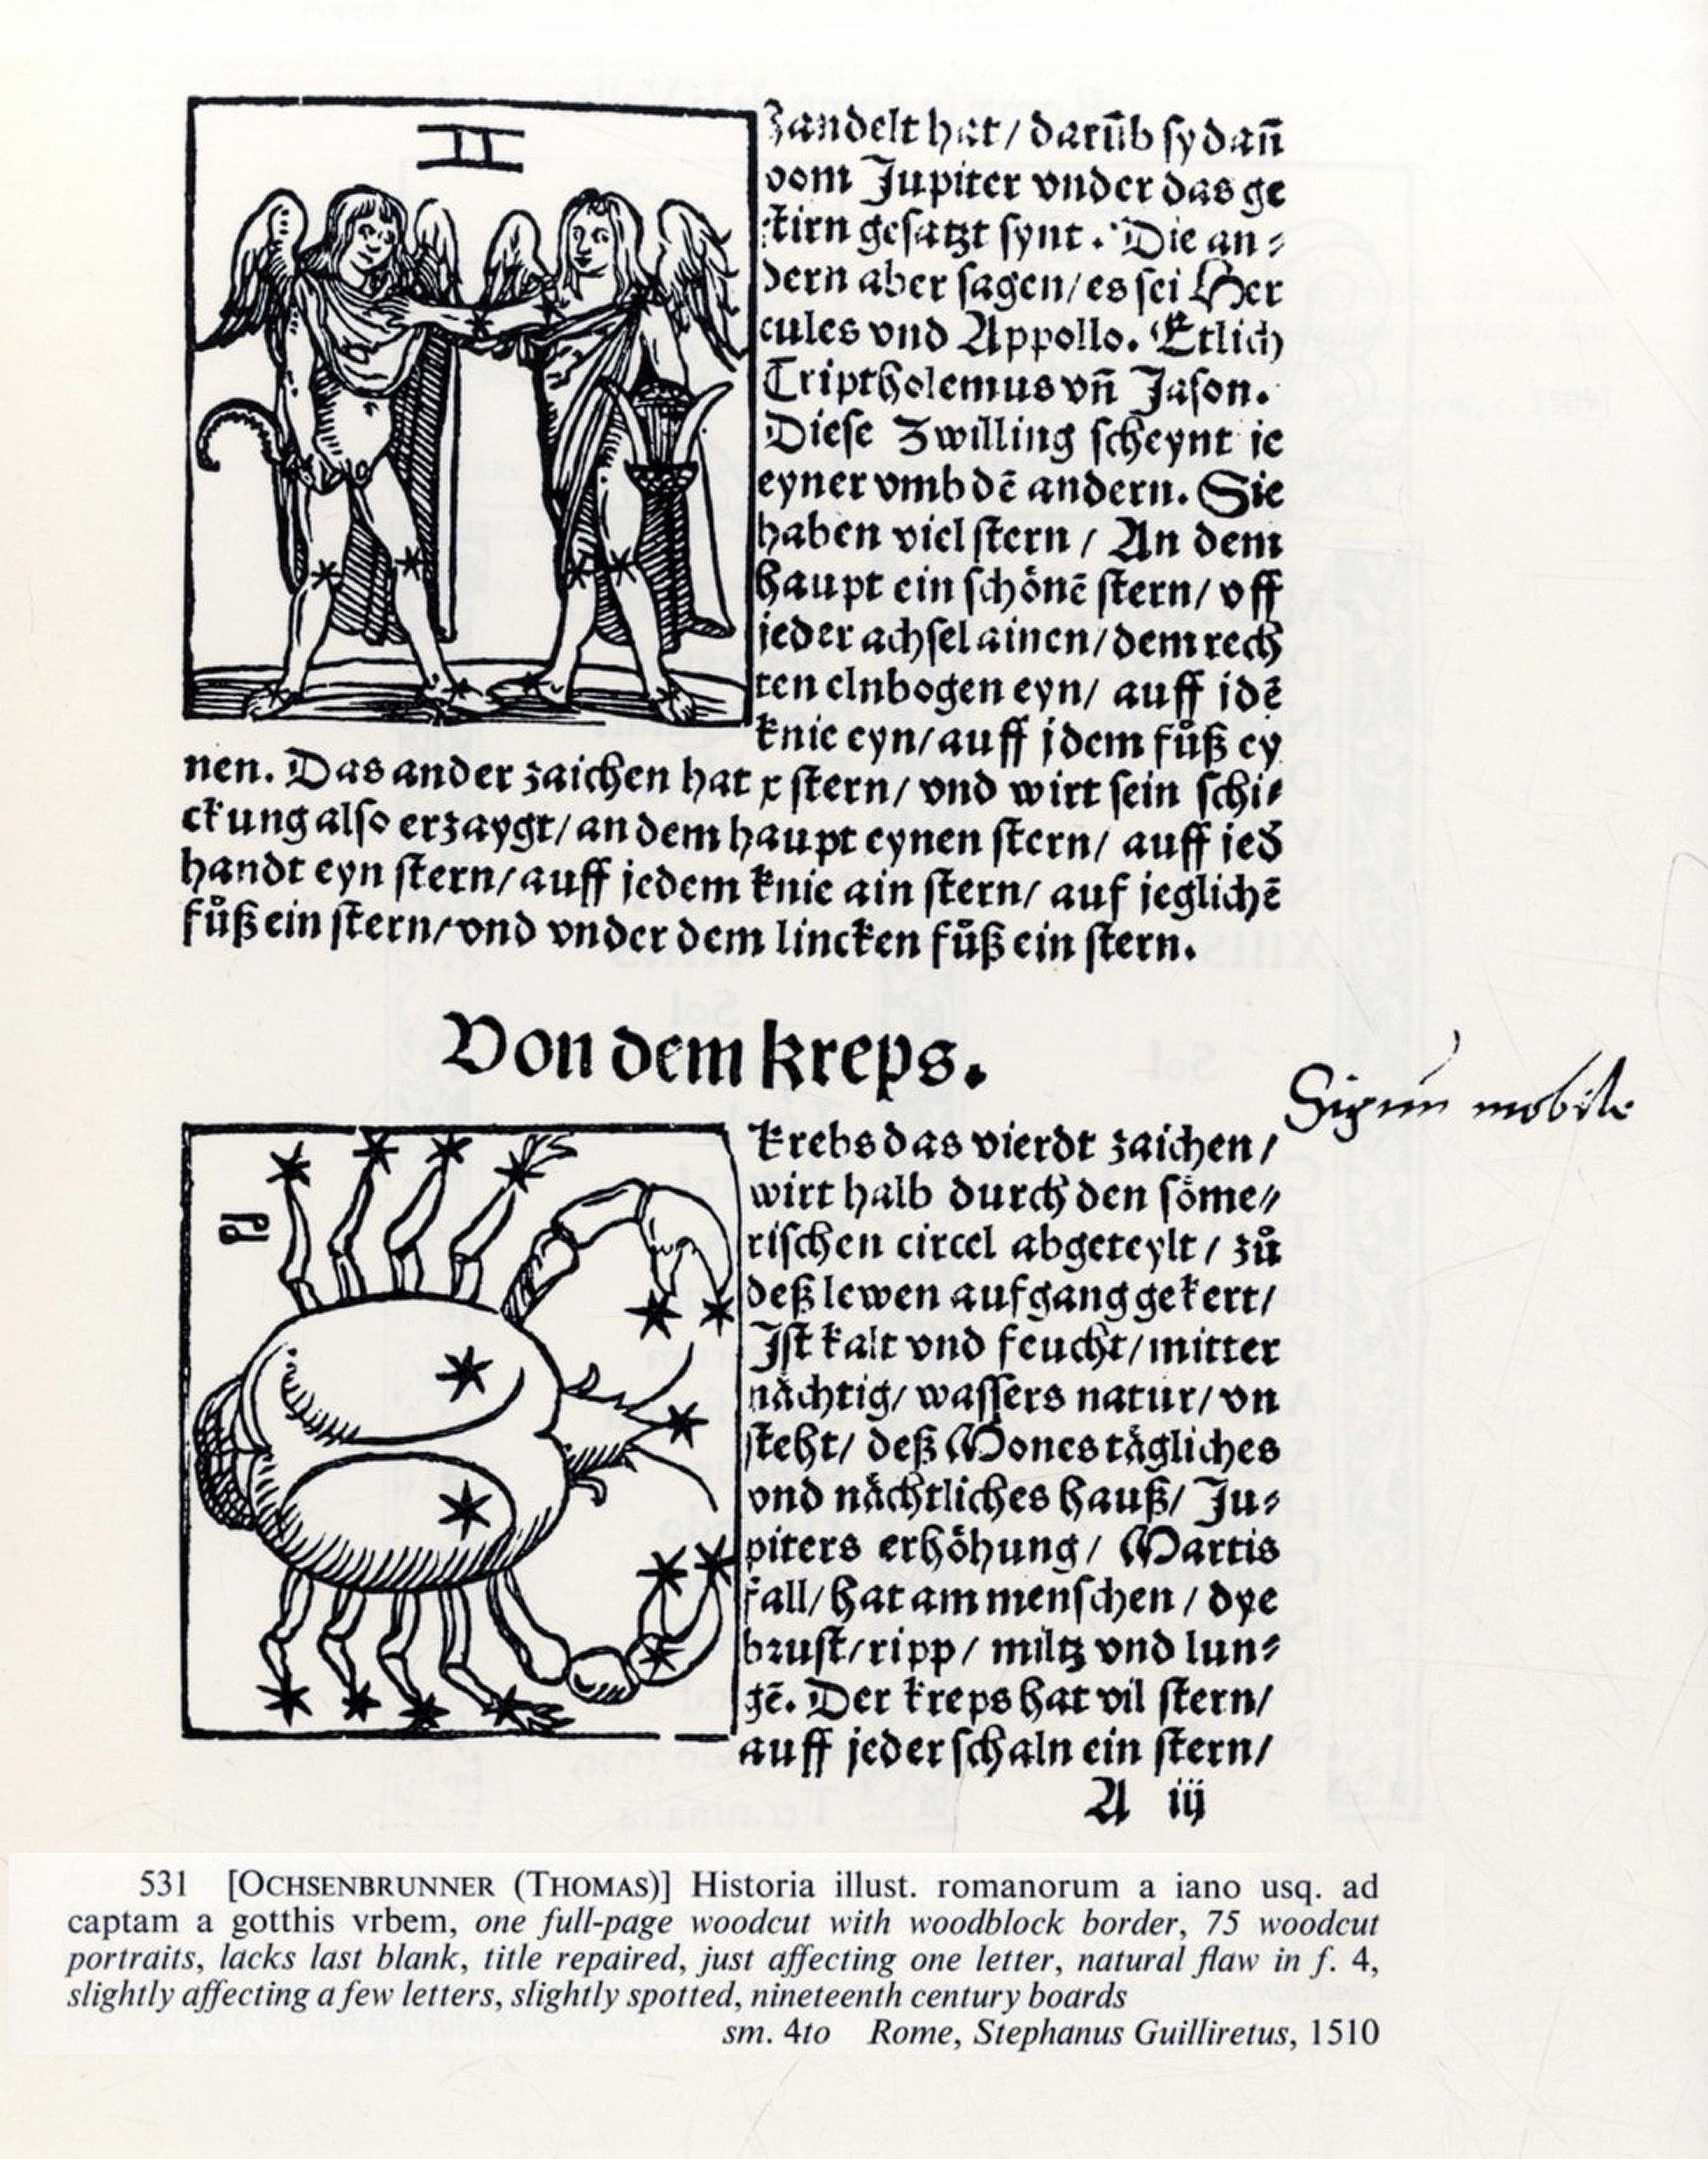 II
handelt hat / darūb sy dañ
vom Jupiter vnder das ge
stirn gesatzt synt. Die an⸗
dern aber sagen / es sei Her
cules vnd Appollo. Etlich
Triptholemus vñ Jason.
Diese Zwilling scheynt ie
eyner vmb dē andern. Sie
haben viel stern / An dem
haupt ein schönē stern / vff
jeder achsel ainen / dem rech
ten elnbogen eyn / auff idē
knie eyn / auff jdem fůß ey
nen. Das ander zaichen hat x stern / vnd wirt sein schi⸗
ckung also erzaygt / an dem haupt eynen stern / auff ied
handt eyn stern / auff jedem knie ain stern / auf ieglichē
fůß ein stern / vnd vnder dem lincken fůß ein stern.
Von dem kreps.
Signū mobile
krebs das vierdt zaichen /
wirt halb durch den söme⸗
rischen circel abgeteylt / zů
deß lewen aufgang gekert /
Ist kalt vnd feucht / mitter
nächtig / wassers natur / vn
steht / deß Mones tägliches
vnd nächtliches hauß / Ju⸗
piters erhöhung / Martis
fall / hat am menschen / dye
brust / ripp / miltz vnd lun⸗
gē. Der kreps hat vil stern /
auff jeder schaln ein stern /
A iij
531 [OCHSENBRUNNER (THOMAS)] Historia illust. romanorum a iano usq. ad
captam a gotthis vrbem, one full-page woodcut with woodblock border, 75 woodcut
portraits, lacks last blank, title repaired, just affecting one letter, natural flaw in f. 4,
slightly affecting a few letters, slightly spotted, nineteenth century boards
sm. 4to Rome, Stephanus Guilliretus, 1510